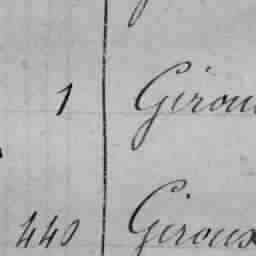 1 Girou
440 Giroux